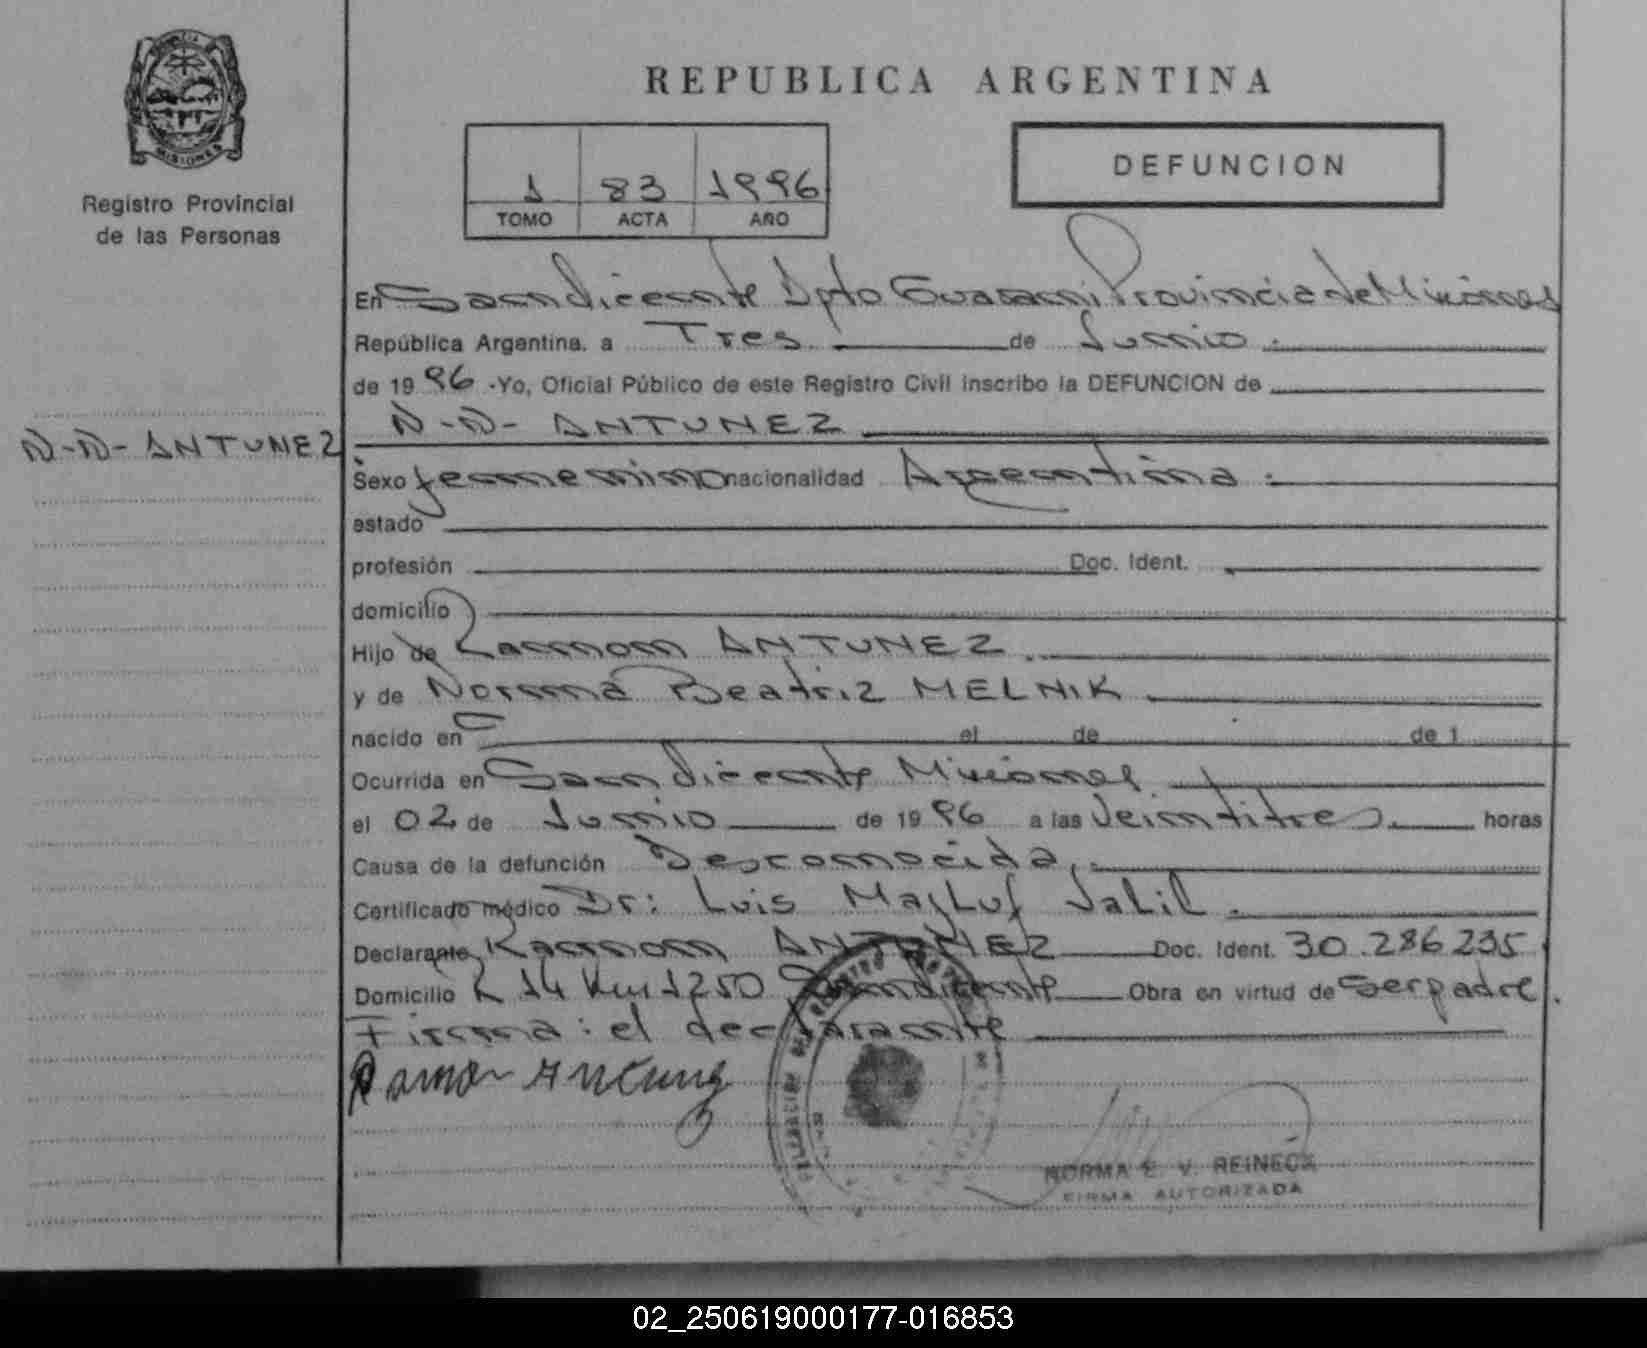 PROVINCIA DE
MISIONES
Registro Provincial
de las Personas
N-N- ANTUNEZ
REPUBLICA ARGENTINA
1 83 1996
TOMO ACTA AÑO
DEFUNCION
En San Vicente Dpto Guarani Provincia de Misiones
República Argentina, a Tres de Junio
de 1996 -Yo, Oficial Público de este Registro Civil inscribo la DEFUNCION de
N-N- ANTUNEZ
Sexo femenino nacionalidad Argentina.
estado
profesión Doc. Ident.
domicilio
Hijo de Ramon ANTUNEZ
y de Norma Beatriz MELNIK
nacido en el de de 1
Ocurrida en San Vicente Misiones
el 02 de Junio de 1996 a las Veintitres horas
Causa de la defunción Desconocida
Certificado médico Dr: Luis Jalil
Declarante Ramon ANTUNEZ Doc. Ident. 30.286235
Domicilio R 14 Km 1250 San Vicente Obra en virtud de Ser padre.
Firma: el declarante
Ramon Antunez
NORMA E. V. REINECK
FIRMA AUTORIZADA
02_250619000177-016853